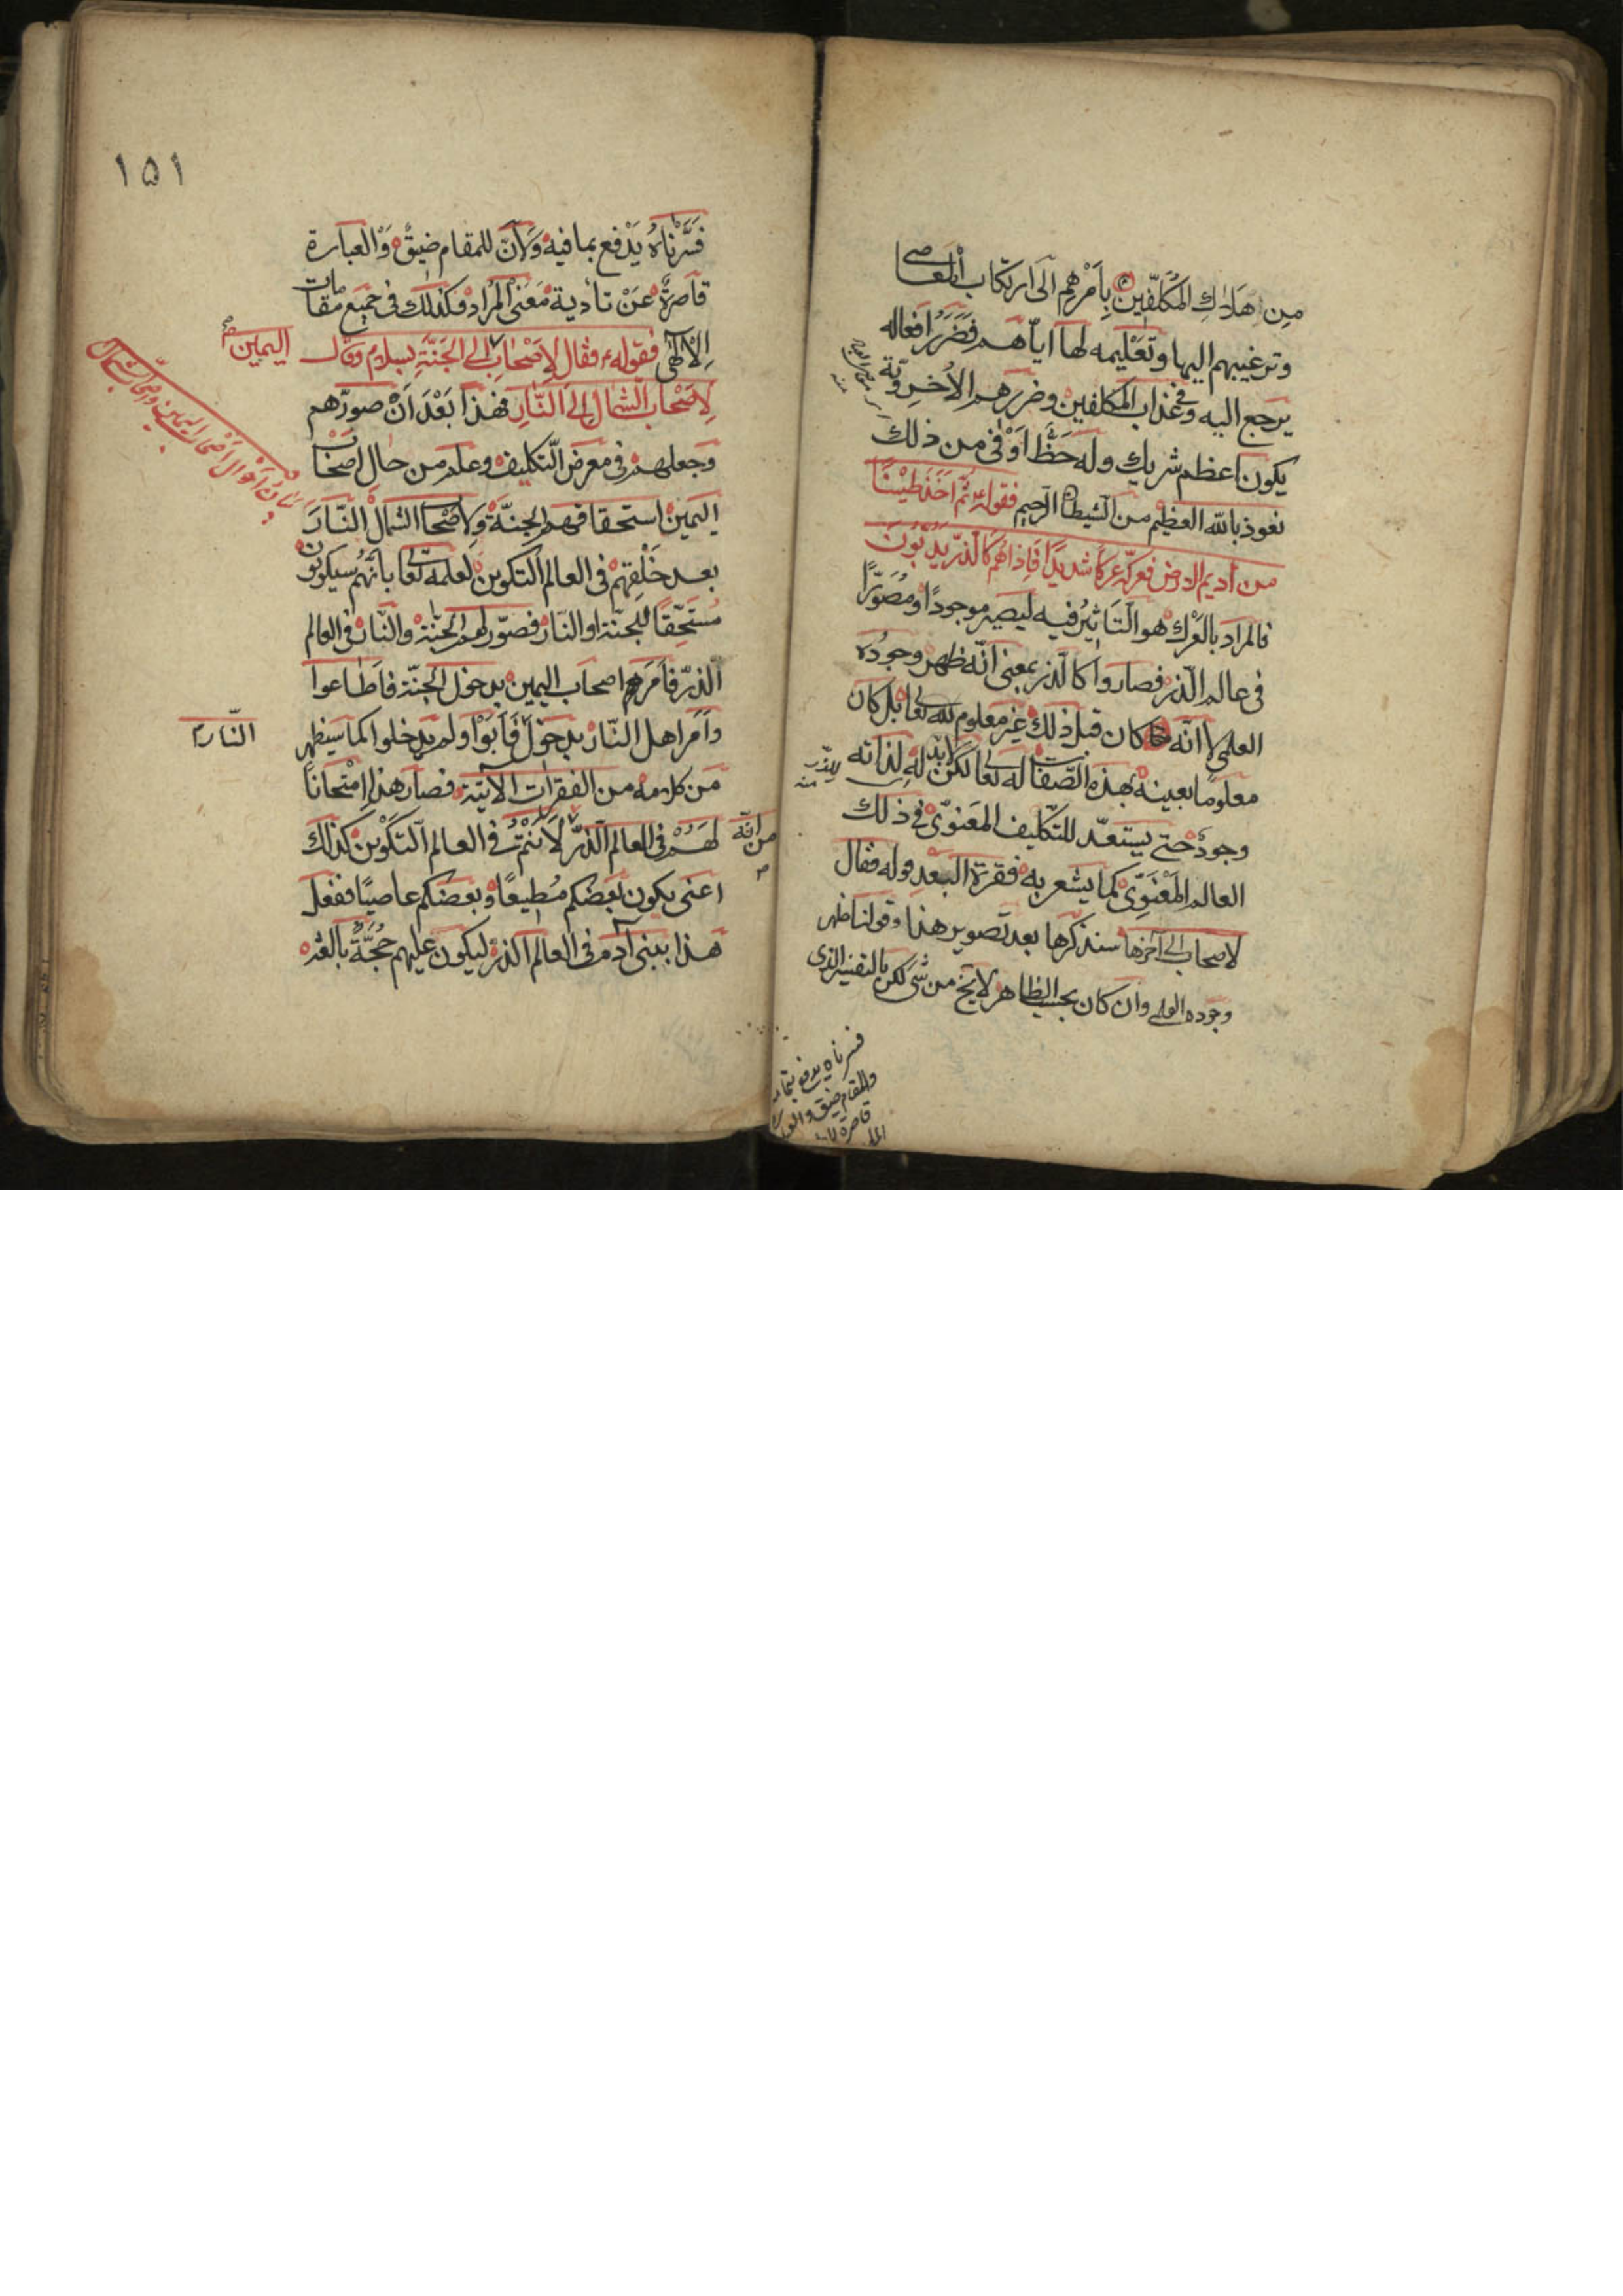 من هلاك المكلّفين بِاَمْرِهِم اِلَى ارتكاب المعاصى
وترغيبهم اليها وتَعْليمه لها ايّاهم فضَرَرُ افعاله
يرجع اليه وفى عذاب المكلفين وضررهم الاُخرِويّة
يكون اعظم شريك وله حَظّ اَوْفى من ذلك
نعوذ بالله العظيم من الشيطان الرجيم فقوله ثُمّ اَخَذَ طِيْنًا
من اَديم الارض فعركَه عَركًا شديدًا فَاِذا هُم كَالذّر يَدِبّونَ
فالمراد بالعَرْك هو التَاثيرُ فيه ليصير موجودًا ومُصَوَّرًا
فى عالم الذّر فصاروا كالذر بمعنى انّه ظهر وجودُه
العلمى لا انّه كان قبل ذلك غير معلوم لله تعا بل كان
معلومًا بعينه بهذه الصّفات له تعا لكن لابدّ له لذاته
وجودٌ حتى يستعدّ للتكليف المَعنوىّ فى ذلك
العالم المَعْنَوِىّ كما يشعر به فقرة البَعد قوله فقال
لاصحاب الى آخرها سنذكرها بعد تصوير هذا وقولنا ظهر
وجوده العلمى وان كان بحسب الظاهر لا يخ من شئ لكن بالتفسير الذى
فسرناه يدفع بما فيه
والمقام ضيق والعبارة
قاصرة
١٥١
فَسَّرْناهُ يَدْفع بما فيه وَلاَنّ للمقام ضيقٌ وَالعبارة
قاصرةٌ عَنْ تادية مَعْنى المُراد وكذلك فى جميع مقامات
الالٰهى فقوله فقال لاَصْحاب اليمين الى الجَنّةِ بِسلامٍ وقال
لِاَصْحاب الشمال اِلى النّارِ فهذا بَعْدَ اَنْ صوّرهم
وجعلهم فى معرض التكليف وعلم من حال اصحاب
اليمين استحقاقهم الجنّةَ ولاَصْحاب الشمال النّارَ
بعد خَلْقِهِم فى العالم التكوين لعلمه تعا بانّهُم سيكونون
مُستَحِقًّا للجنّة او النّار فصوّر لهم الجنّة والنّار فى العالم
الذرّ فاَمَرَهم اصحاب اليمين بدخول الجنّة فاَطاعوا
وَاَمَرَ اهل النّار بدخول النّار فَاَبَوْا ولم يدخلوا كما سيظهر
مَن كلامه من الفقرات الآتية فصار هذا اِمْتحانًا
لهُمْ فى العالم الذرّ من انّه لاَنْتمْ فى العالم التكوين كذلك
اعنى يكون بَعْضكم مُطيعًا وبَعْضكم عاصيًا ففعل
هذا ببنى آدم فى العالم الذرّ ليكون عليهم حجّةٌ بالغة
بيان احوال اصحاب اليمين واصحاب الشمال